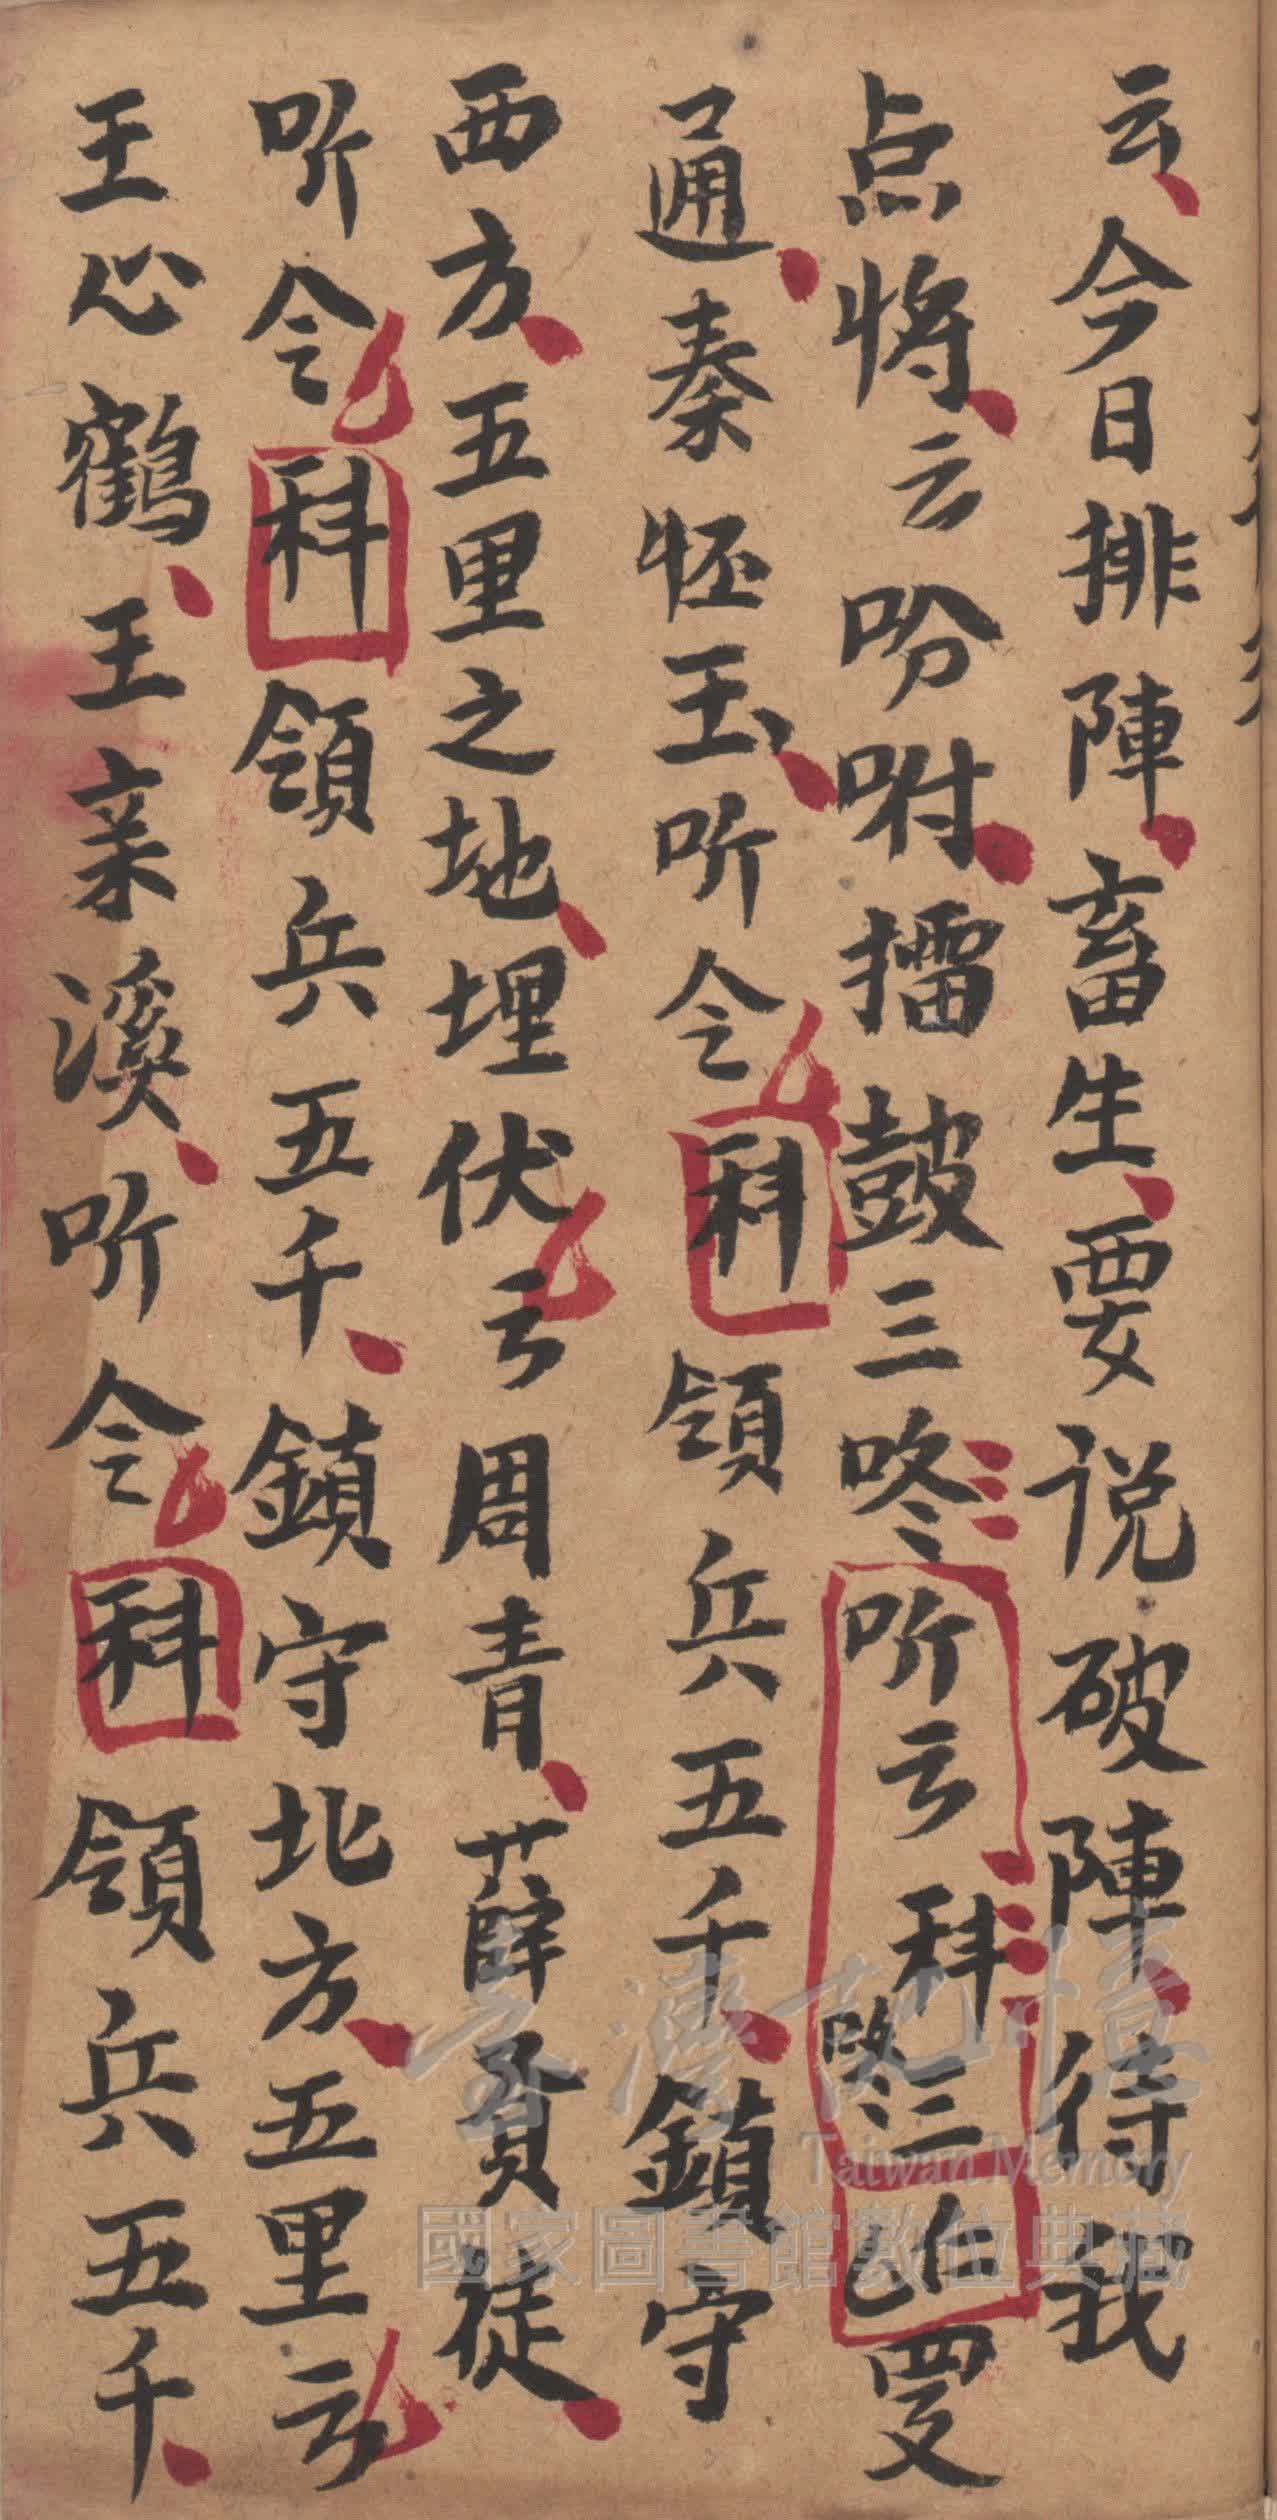 云今日排陣畜生要说破陣待我
点将云吩咐擂鼓三咚听云科咚三
通秦怀玉听令科領兵五千鎮守
西方五里之地埋伏云周青薛賢徒
听令科領兵五千鎮守北方五里云
王心鶴王亲溪听令科領兵五千
臺灣記憶
Taiwan Memory
國家圖書館數位典藏